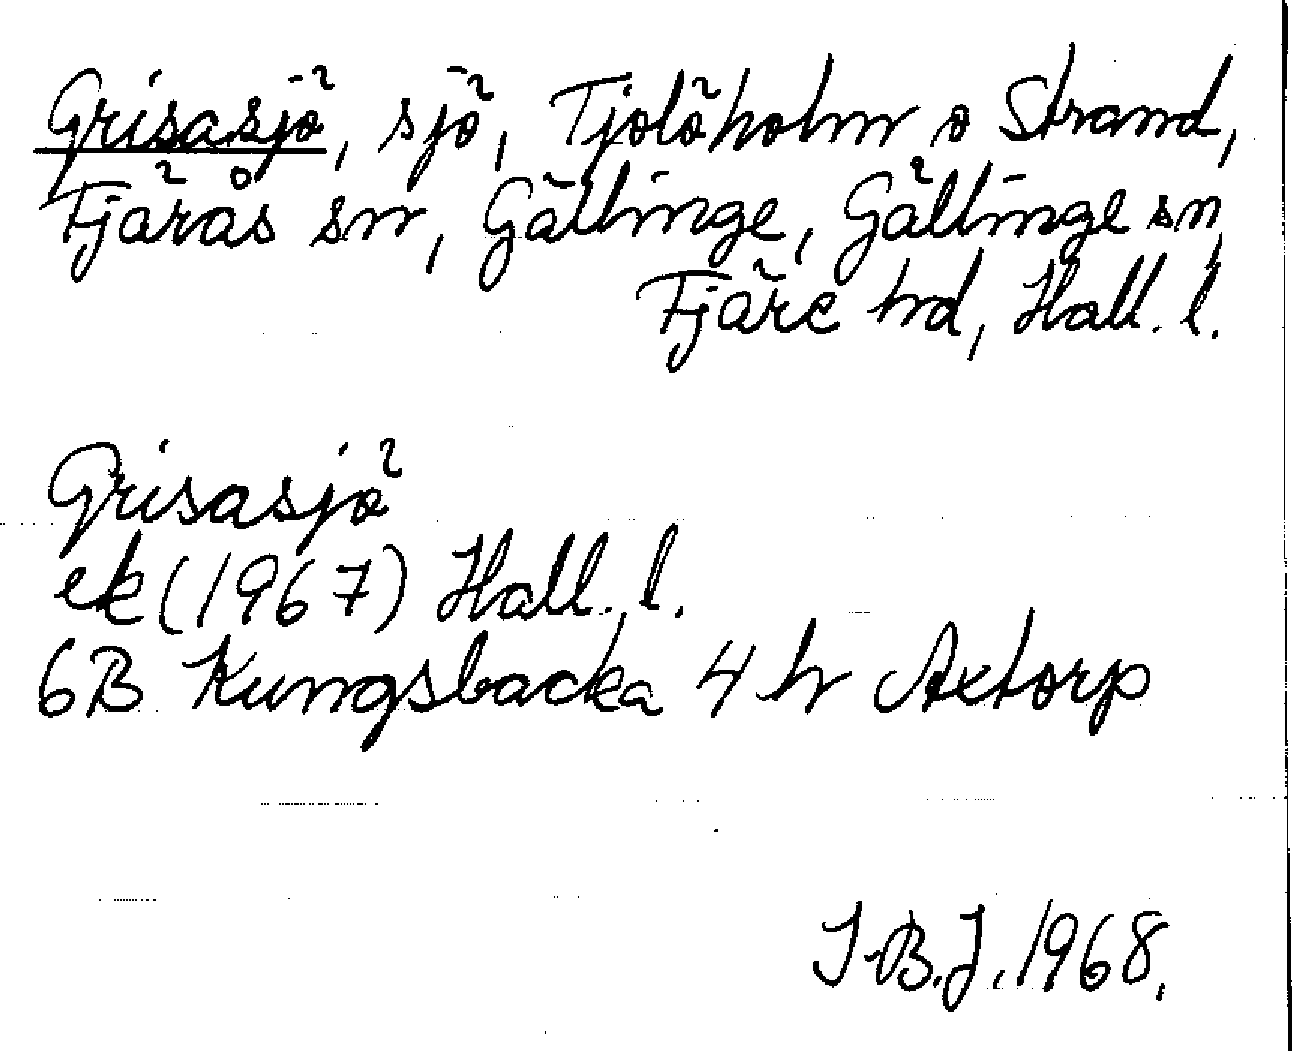 Grisasjö, sjö, Tjolöholm o Strand,
Fjärås sn, Gällinge, Gällinge sn,
Fjäre hd, Hall. l.
Grisasjö
ek (1967) Hall. l.
6B Kungsbacka 4 h Axtorp
I-B.J. 1968.